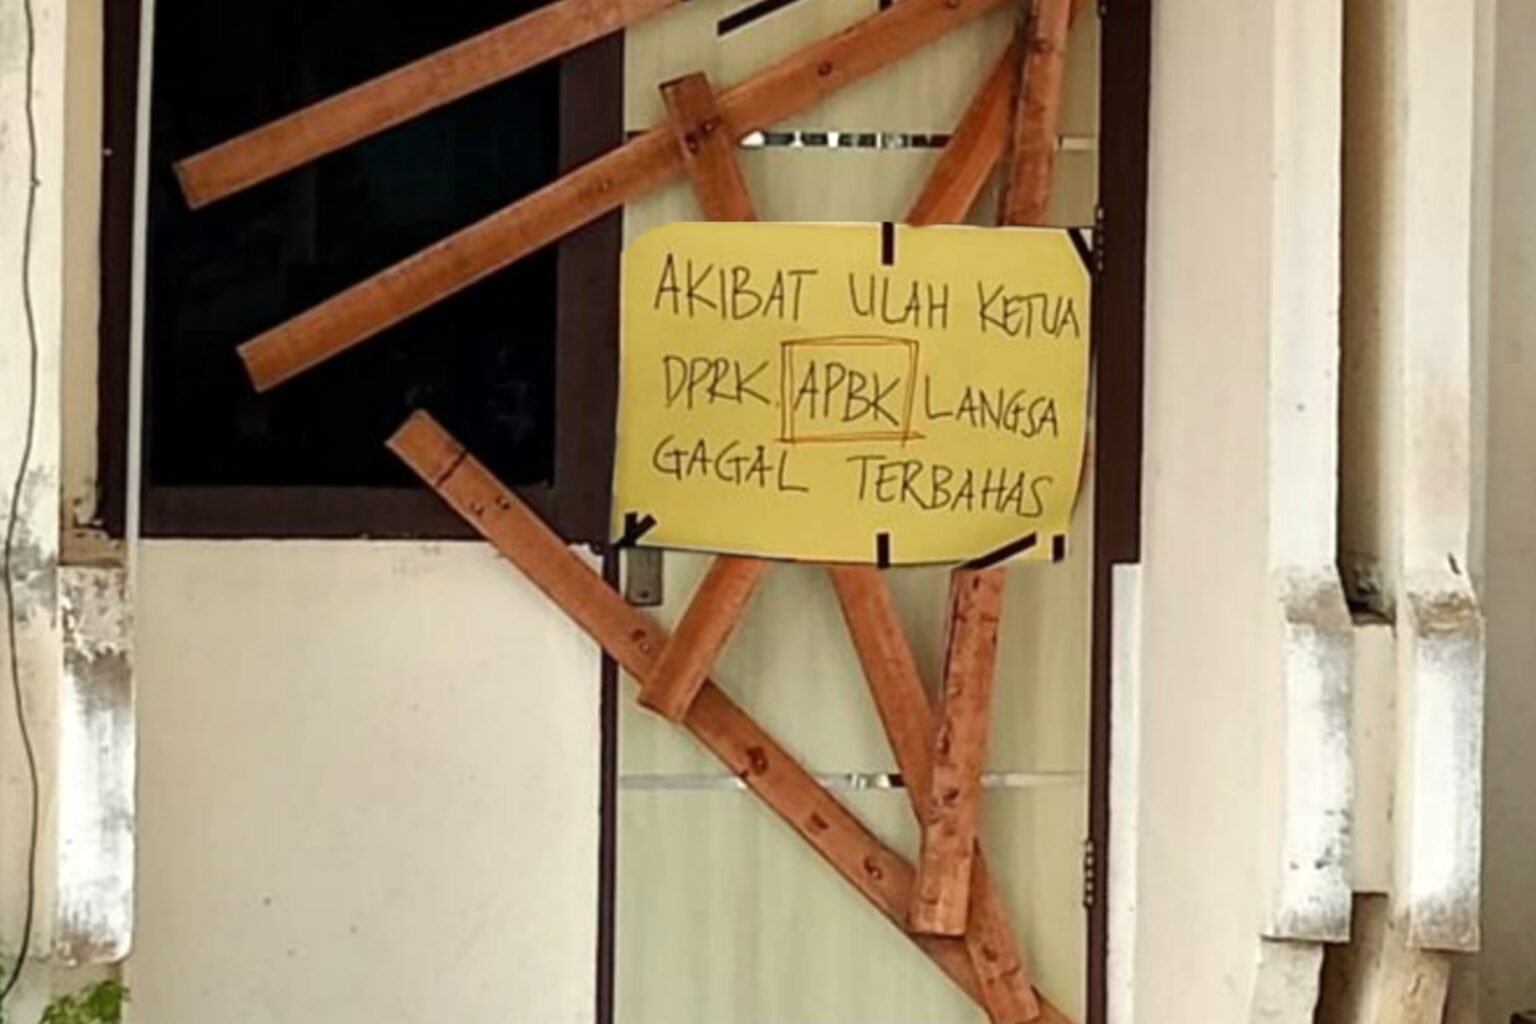 AKIBAT ULAH KETUA
DPRK APBK LANGSA
GAGAL TERBAHAS